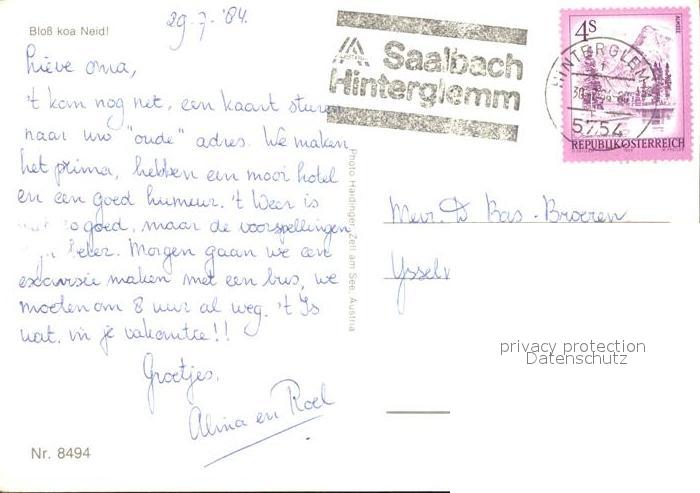 29-7-'84.
Bloß koa Neid!
Lieve oma,
't kan nog net, een kaart sturen
naar uw "oude" adres. We maken
het prima, hebben een mooi hotel
en een goed humeur. 't Weer is
zo goed, maar de voorspellingen
beter. Morgen gaan we een
excursie maken met een bus, we
moeten om 8 uur al weg. 't Is
wat. in je vakantie!!
Groetjes,
Alina en Roel
Nr. 8494
Photo Haidinger, Zell am See, Austria
Saalbach
Hinterglemm
HINTERGLEMM
5754
4S
REPUBLIK ÖSTERREICH
Mevr. D Bas-Broeren
IJsselv
privacy protection
Datenschutz